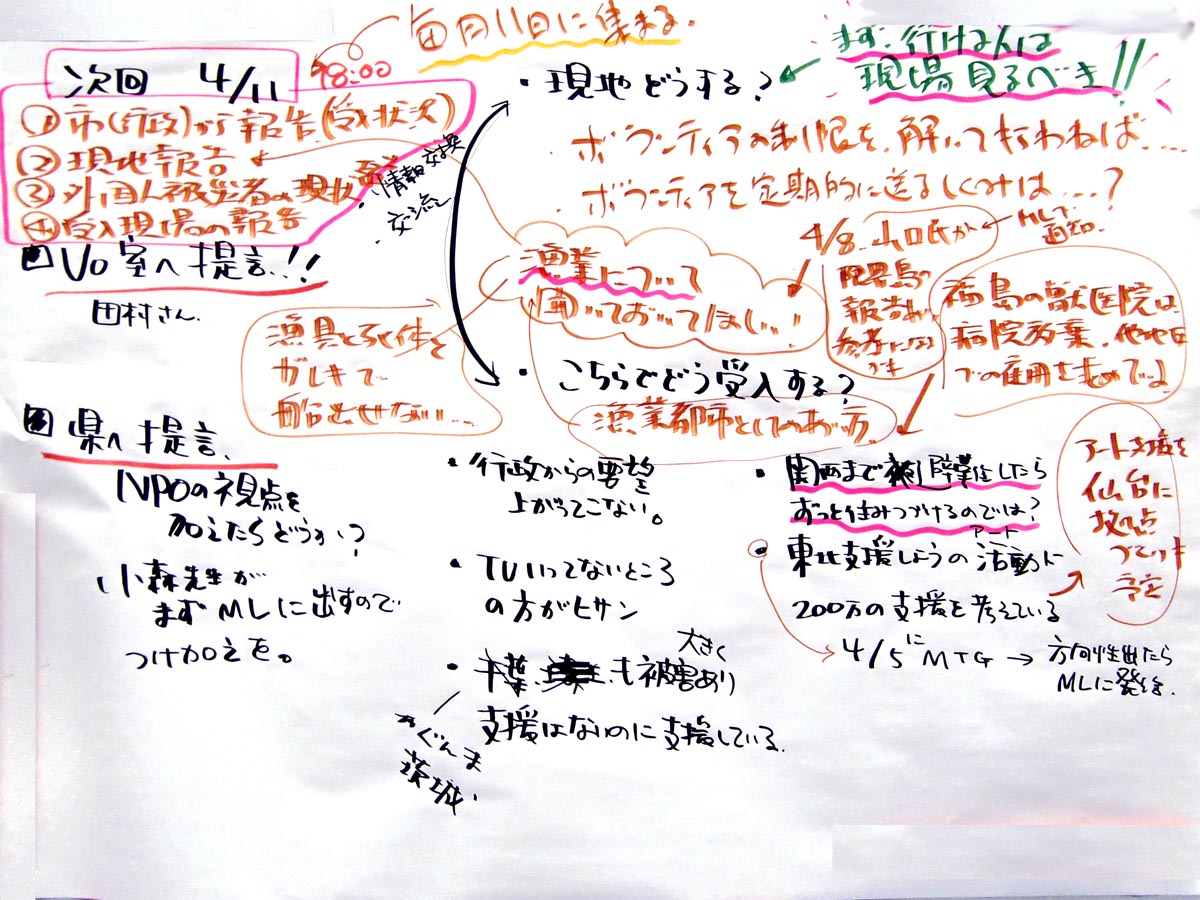 毎月11日に集まる。
次回 4/11
18:00
①市(行政)から報告(受入状況)
②現地報告
③外国人被災者の現状 報告
④受入現場の報告
・情報交換
・交流
Vo室へ提言!!
田村さん
県へ提言、
NPOの視点を
加えたらどうか?
小森先生が
まずMLに出すので
つけ加えを。
・現地どうする?
まず、行ける人は
現場見るべき!!
ボランティアの制限を、解いて行わねば....
ボランティアを定期的に送るしくみは...?
漁業について
聞いておいてほしい!
漁具とろ 体と
ガレキで
船出せない...
4/8.山口氏が
MLで
通知
限界島の
報告が
参考になる
福島の獣医院は
病院放棄、他地区
での雇用を求めてるよ
・こちらでどう受入する?
漁業都市としてのあり方、
・行政からの要望
上がってこない。
・TV入ってないところ
の方がヒサン
・千葉、も被害あり
大きく
ぐんま
茨城、
支援はないのに支援している、
・関西まで 避難したら
ずっと住みつづけるのでは?
・東北支援しようの活動に
アート
200万の支援を考えている
4/5にMTG → 方向性出たら
MLに発信、
アート支援を
仙台に
拠点
づくり
予定